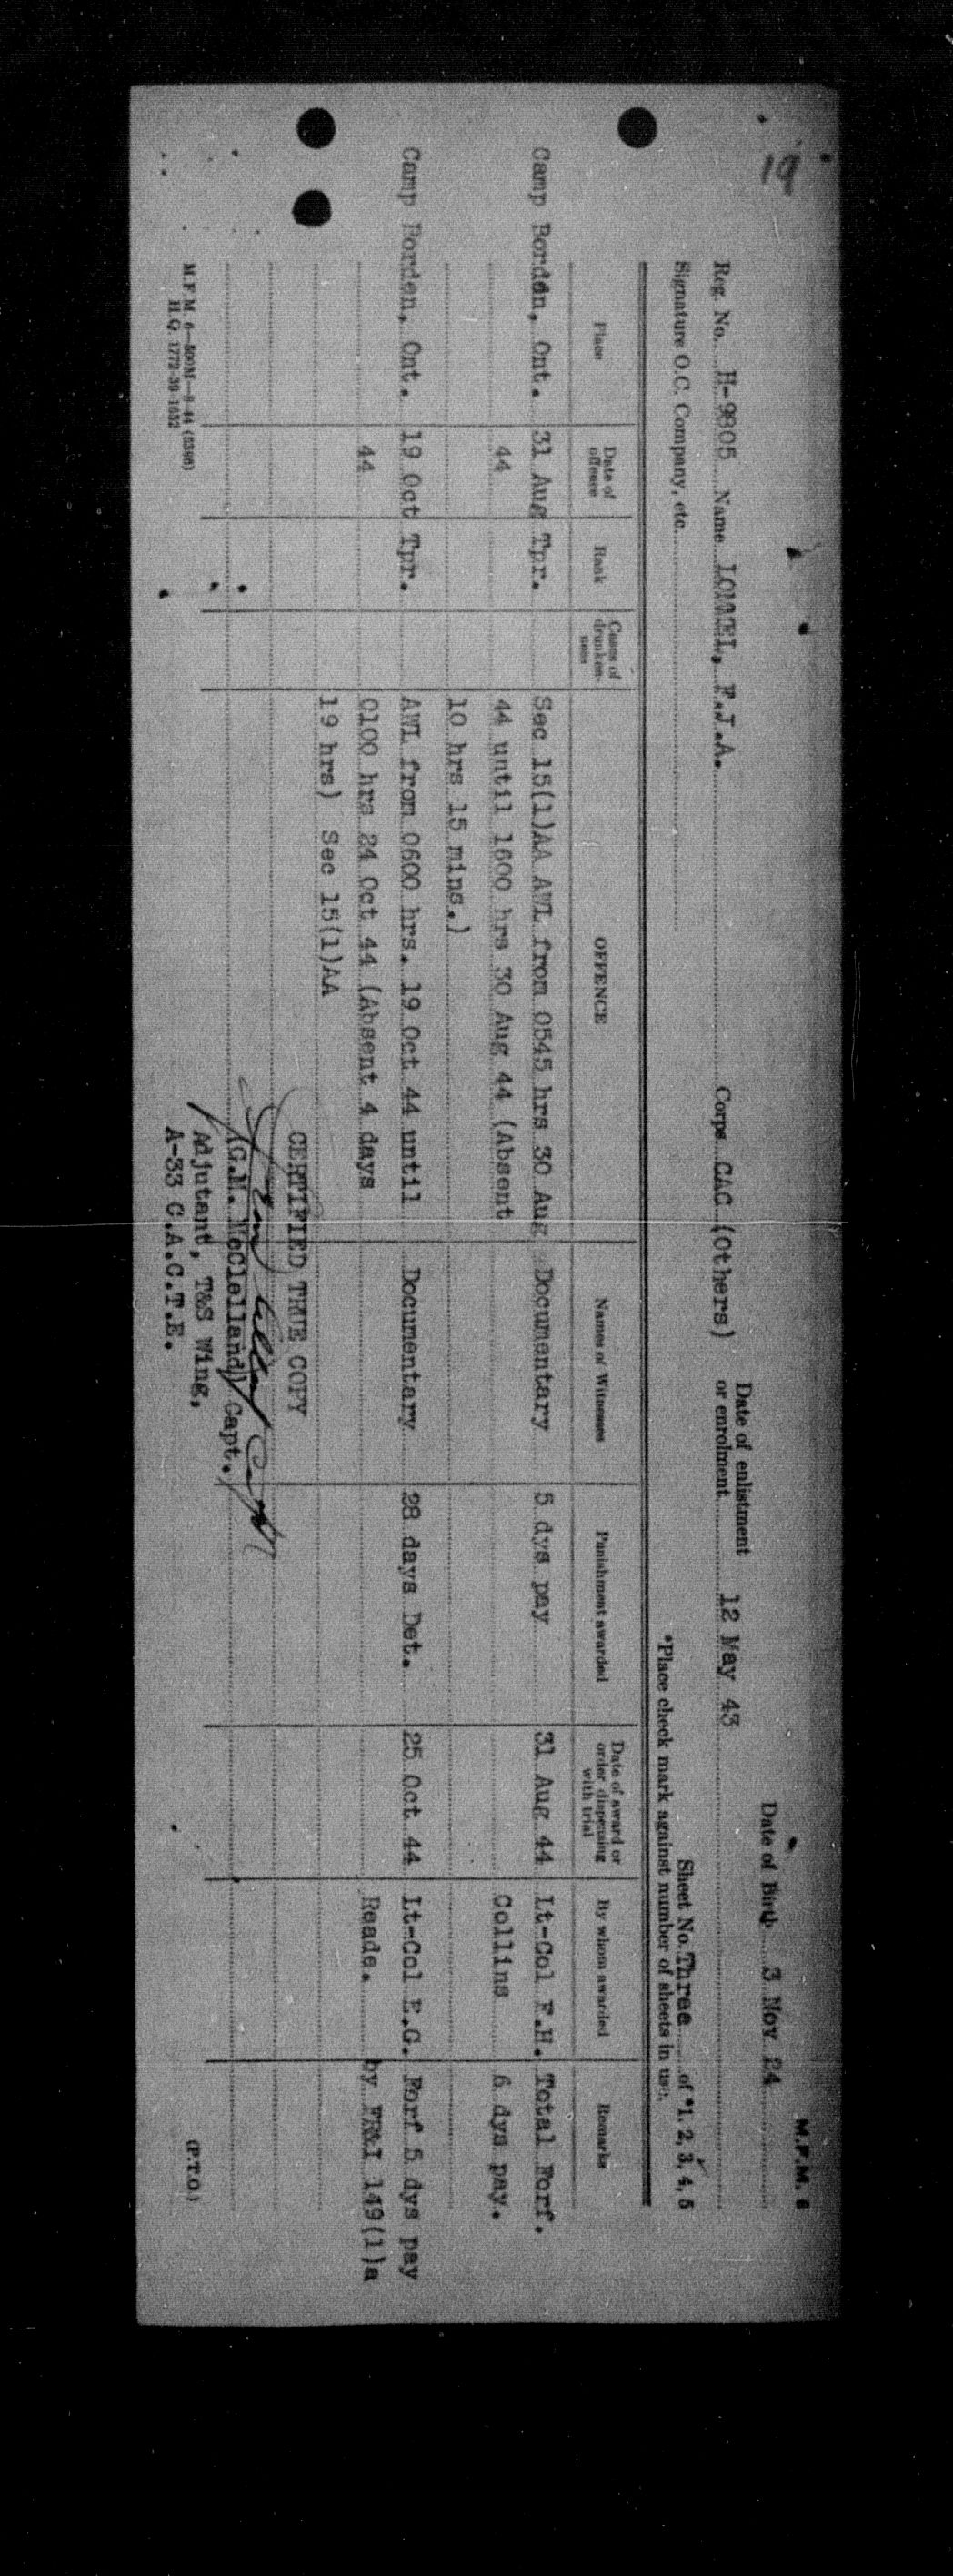 19
M.F.M. 6
Date of Birth 3 Nov 24
Reg. No. H-9805 Name LOMMEL, F.J.A. Corps CAC (Others) Date of enlistment or enrolment 12 May 43
Signature O.C. Company, etc.
Sheet No. Three of *1, 2, 3, 4, 5
*Place check mark against number of sheets in use.
Place Date of offence Rank Cases of drunken-ness OFFENCE Names of Witnesses Punishment awarded Date of award or order dispensing with trial By whom awarded Remarks
Camp Borden, Ont. 31 Aug Tpr. Sec 15(1)AA AWL from 0545 hrs 30 Aug Documentary 5 dys pay 31 Aug 44 Lt-Col F.H. Total Forf.
44 44 until 1600 hrs 30 Aug 44 (Absent Collins 6 dys pay.
10 hrs 15 mins.)
Camp Borden, Ont. 19 Oct Tpr. AWL from 0600 hrs. 19 Oct 44 until Documentary 28 days Det. 25 Oct 44 Lt-Col E.G. Forf 5 dys pay
44 0100 hrs 24 Oct 44 (Absent 4 days Reade. by FR&I 149(1)a
19 hrs) Sec 15(1)AA
CERTIFIED TRUE COPY
(G.M. McClelland) Capt.
Adjutant, T&S Wing,
A-33 C.A.C.T.E.
M.F.M. 6—500M—8-44 (8396)
H.Q. 1772-39-1652
(P.T.O.)